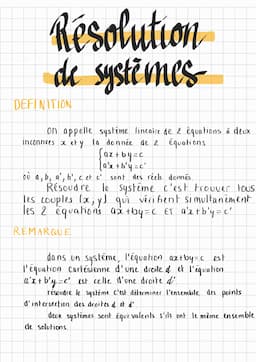 Résolution
de systèmes
DEFINITION
On appelle système linéaire de 2 équations à deux
inconnues x et y la donnée de 2 équations
{ax+by=c
a'x+b'y=c'
où a, b, a', b', c et c' sont des réels donnés.
Résoudre le système c'est trouver tous
les couples (x,y) qui vérifient simultanément
les 2 équations ax+by=c ET a'x+b'y=c'
REMARQUE
dans un système, l'équation ax+by=c est
l'équation cartésienne d'une droite d et l'équation
a'x+b'y=c' est celle d'une droite d'
résoudre le système c'est déterminer l'ensemble des points
d'intersection des droites d et d'
deux systèmes sont équivalents s'ils ont le même ensemble
de solutions.